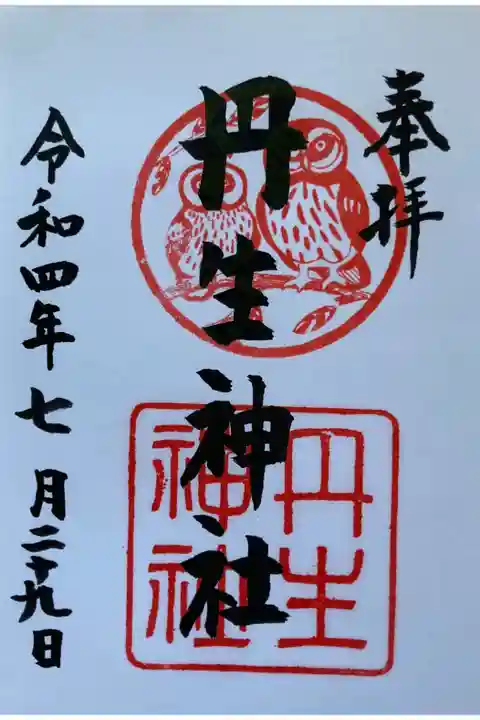 奉拝
丹生神社
丹生
神社
令和四年七月二十九日